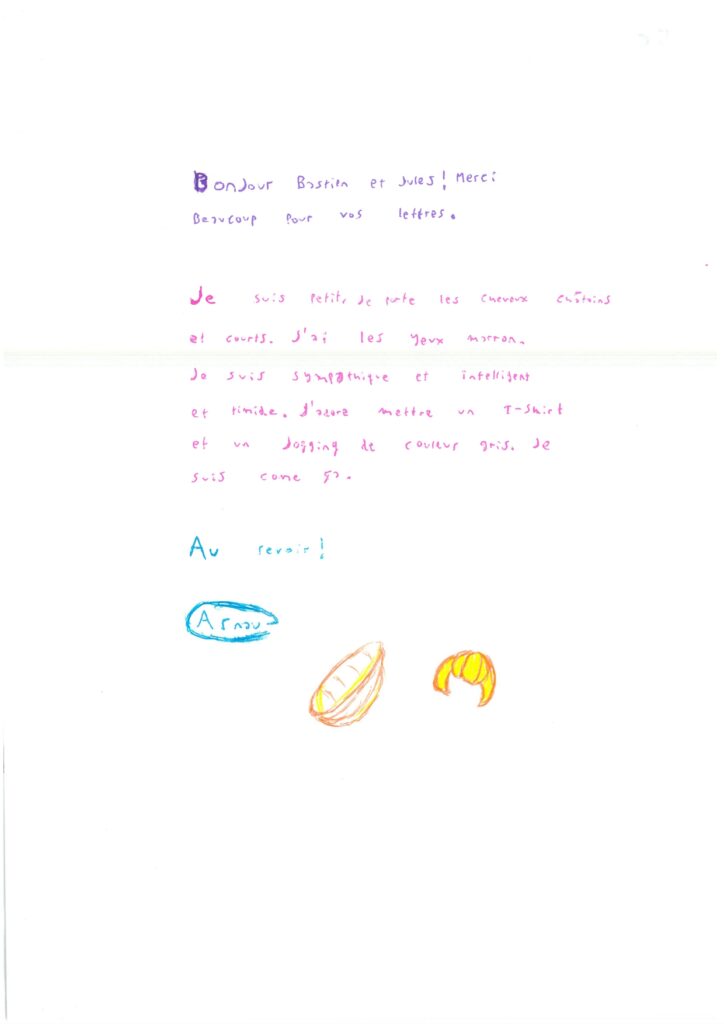 Bonjour Bastien et Jules! Merci
Beaucoup pour vos lettres.
Je suis petit, Je porte les cheveux chatains
et courts. J'ai les yeux marron.
Je suis sympathique et intelligent
et timide. J'adore mettre un T-Shirt
et un Jogging de couleur gris. Je
suis come ça.
Au revoir!
Arnau